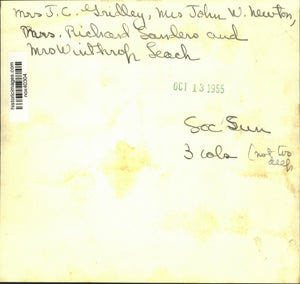 Mrs J. C. Gridley, Mrs John W. Newton,
Mrs. Richard Sanders and
Mrs Winthrop Leach
historicimages.com
OCT 13 1955
Soc Sun
3 cols (not too
deep)